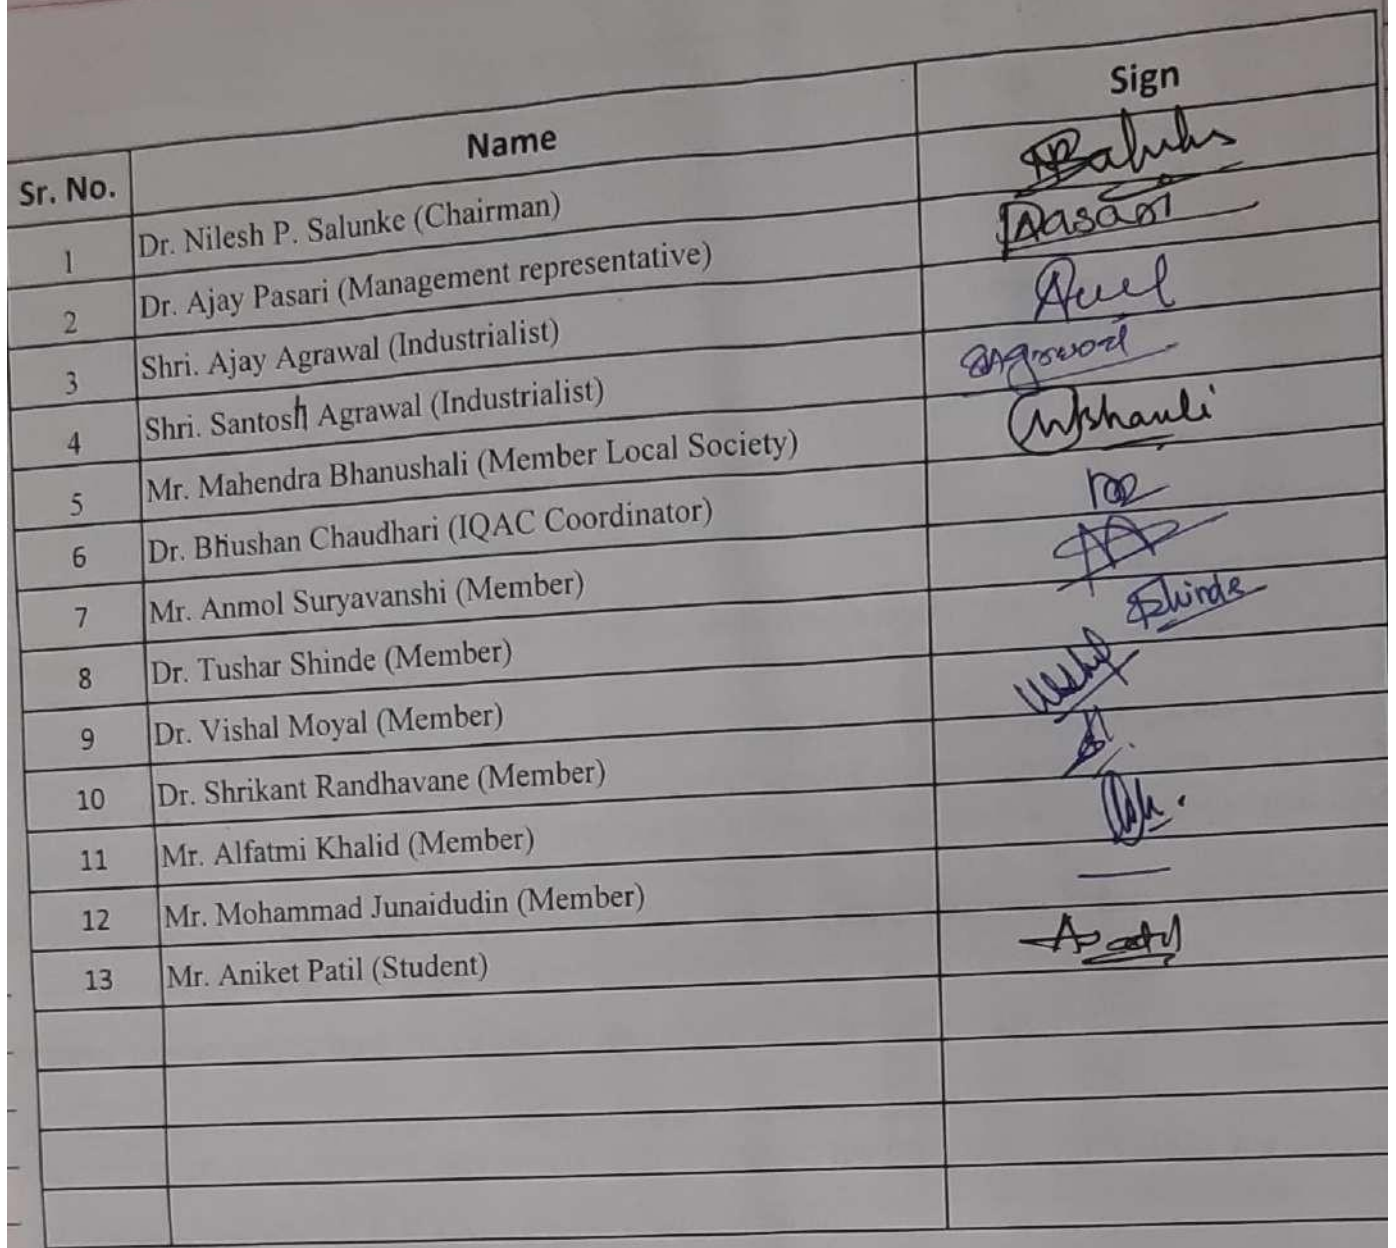 Sr. No. Name Sign
1 Dr. Nilesh P. Salunke (Chairman)
2 Dr. Ajay Pasari (Management representative) Pasari
3 Shri. Ajay Agrawal (Industrialist)
4 Shri. Santosh Agrawal (Industrialist) Agrawal
5 Mr. Mahendra Bhanushali (Member Local Society)
6 Dr. Bhushan Chaudhari (IQAC Coordinator)
7 Mr. Anmol Suryavanshi (Member)
8 Dr. Tushar Shinde (Member) Shinde
9 Dr. Vishal Moyal (Member)
10 Dr. Shrikant Randhavane (Member)
11 Mr. Alfatmi Khalid (Member)
12 Mr. Mohammad Junaidudin (Member) —
13 Mr. Aniket Patil (Student)